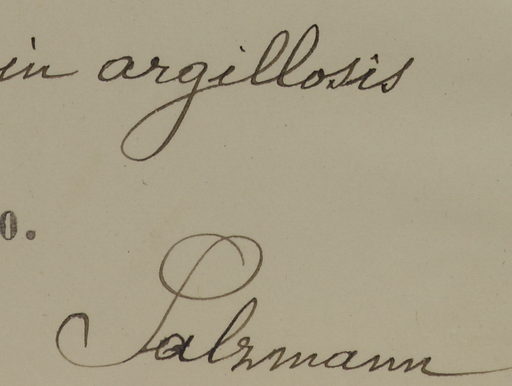 in argillosis
o.
Salzmann